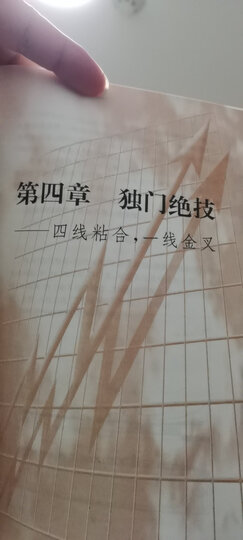 第四章 独门绝技
——四线粘合,一线金叉